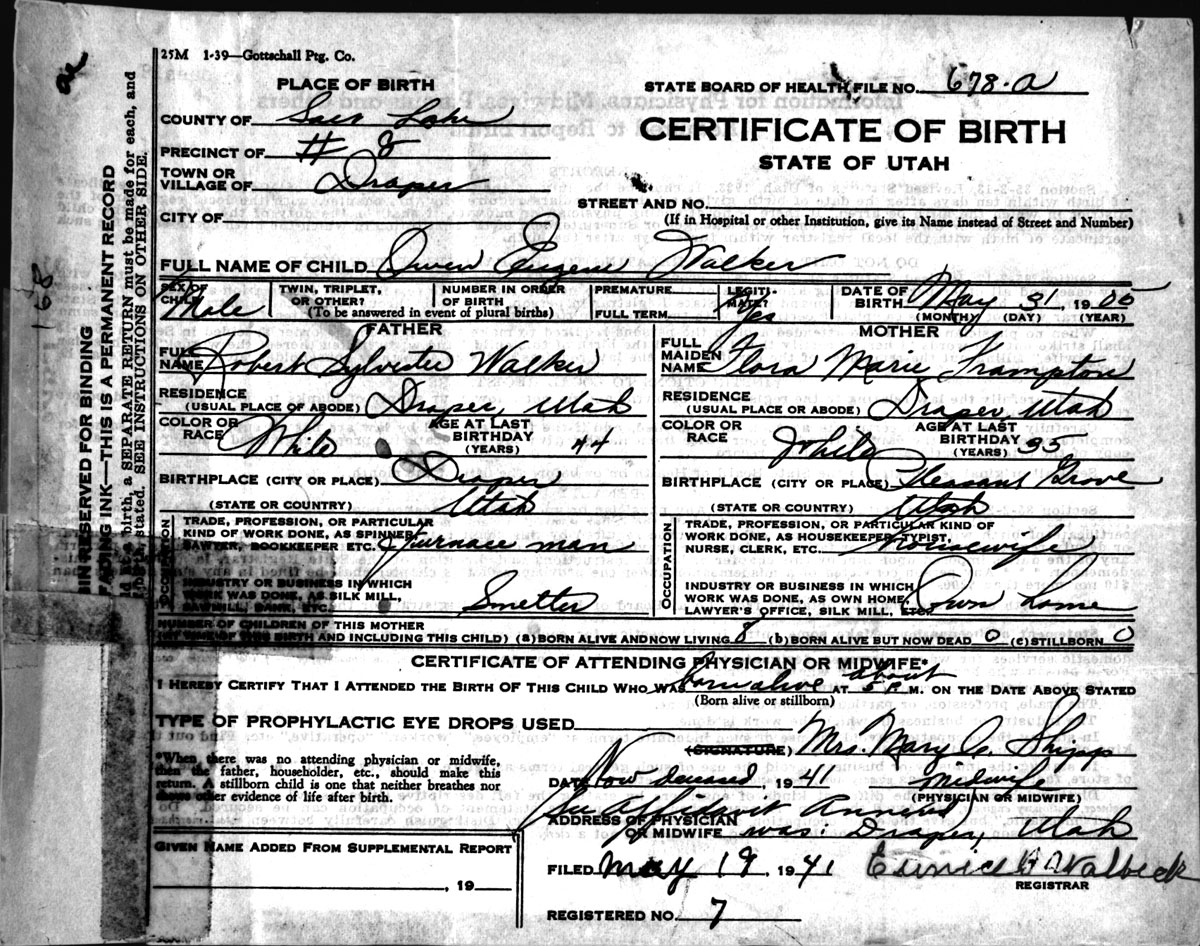 25M 1-39—Gottschall Ptg. Co.
PLACE OF BIRTH
STATE BOARD OF HEALTH FILE NO. 678-a
COUNTY OF Salt Lake
CERTIFICATE OF BIRTH
PRECINCT OF # 8
STATE OF UTAH
TOWN OR
VILLAGE OF Draper
STREET AND NO.
CITY OF
(If in Hospital or other Institution, give its Name instead of Street and Number)
FULL NAME OF CHILD Owen Eugene Walker
SEX OF CHILD Male
TWIN, TRIPLET, OR OTHER?
NUMBER IN ORDER OF BIRTH
(To be answered in event of plural births)
PREMATURE
FULL TERM
LEGITIMATE? Yes
DATE OF BIRTH May 31 1905
(MONTH) (DAY) (YEAR)
FATHER
FULL NAME Robert Sylvester Walker
RESIDENCE
(USUAL PLACE OF ABODE) Draper, Utah
COLOR OR RACE White
AGE AT LAST BIRTHDAY (YEARS) 44
BIRTHPLACE (CITY OR PLACE) Draper
(STATE OR COUNTRY) Utah
OCCUPATION
TRADE, PROFESSION, OR PARTICULAR
KIND OF WORK DONE, AS SPINNER,
SAWYER, BOOKKEEPER ETC. Furnace man
INDUSTRY OR BUSINESS IN WHICH
WORK WAS DONE, AS SILK MILL,
SAWMILL, BANK, ETC. Smelter
MOTHER
FULL MAIDEN NAME Flora Marie Frampton
RESIDENCE
(USUAL PLACE OR ABODE) Draper, Utah
COLOR OR RACE White
AGE AT LAST BIRTHDAY (YEARS) 35
BIRTHPLACE (CITY OR PLACE) Pleasant Grove
(STATE OR COUNTRY) Utah
OCCUPATION
TRADE, PROFESSION, OR PARTICULAR KIND OF
WORK DONE, AS HOUSEKEEPER, TYPIST,
NURSE, CLERK, ETC. Housewife
INDUSTRY OR BUSINESS IN WHICH
WORK WAS DONE, AS OWN HOME,
LAWYER'S OFFICE, SILK MILL, ETC. Own home
NUMBER OF CHILDREN OF THIS MOTHER
(AT TIME OF THIS BIRTH AND INCLUDING THIS CHILD) (a) BORN ALIVE AND NOW LIVING 8 (b) BORN ALIVE BUT NOW DEAD 0 (c) STILLBORN 0
CERTIFICATE OF ATTENDING PHYSICIAN OR MIDWIFE*
I HEREBY CERTIFY THAT I ATTENDED THE BIRTH OF THIS CHILD WHO WAS born alive AT about 5 P. M. ON THE DATE ABOVE STATED
(Born alive or stillborn)
TYPE OF PROPHYLACTIC EYE DROPS USED
(SIGNATURE) Mrs. Mary A. Shipp
*When there was no attending physician or midwife,
then the father, householder, etc., should make this
return. A stillborn child is one that neither breathes nor
shows other evidence of life after birth.
DATE Now deceased, 1941 midwife
(PHYSICIAN OR MIDWIFE)
See Affidavit Annexed
ADDRESS OF PHYSICIAN
OR MIDWIFE was: Draper, Utah
GIVEN NAME ADDED FROM SUPPLEMENTAL REPORT
, 19
FILED May 19, 1941
REGISTRAR
REGISTERED NO. 7
168
GIN RESERVED FOR BINDING
FADING INK—THIS IS A PERMANENT RECORD
birth, a SEPARATE RETURN must be made for each, and
stated. SEE INSTRUCTIONS ON OTHER SIDE.